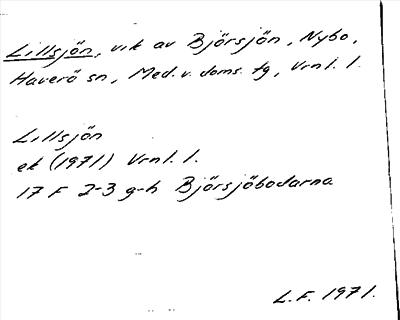 Lillsjön, vik av Björsjön, Nybo,
Haverö sn, Med. v. doms. tg, Vrnl. l.
Lillsjön
ek (1971) Vrnl. l.
17 F 2-3 g-h Björsjöbodarna
L.F. 1971.